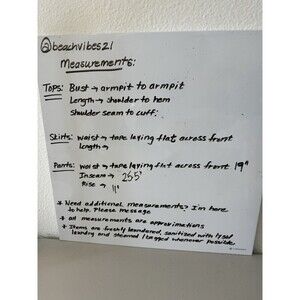 @beachvibes21
Measurements:
Tops: Bust → armpit to armpit
Length → shoulder to hem
Shoulder seam to cuff:
Skirts: waist → tape laying flat across front
Length →
Pants: waist → tape laying flat across front 19"
Inseam → 25.5"
Rise → 11"
* Need additional measurements? I'm here
to help. Please message
* all measurements are approximations
* Items are freshly laundered, sanitized with lysol
laundry and steamed / tagged whenever possible.